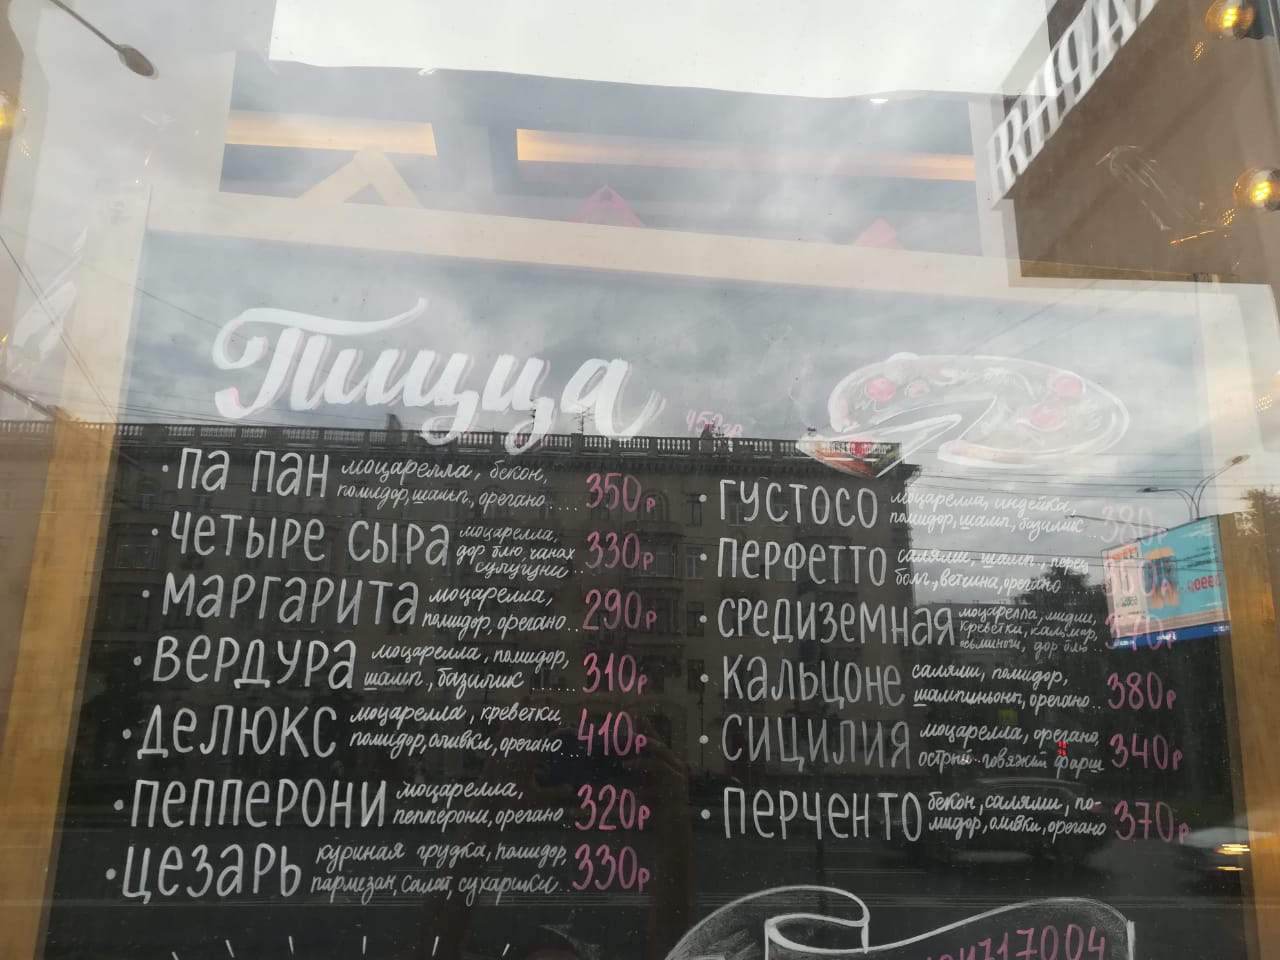 Пицца
450гр
· ПА ПАН моцарелла, бекон,
помидор, шамп, орегано.... 350р
· ЧЕТЫРЕ СЫРА моцарелла,
дор блю, чанах
сулугуни.. 330р
· МАРГАРИТА моцарелла,
помидор, орегано.. 290р
· ВЕРДУРА моцарелла, помидор,
шамп, базилик ...... 310р
· ДЕЛЮКС моцарелла, креветки,
помидор, оливки, орегано 410р
· ПЕППЕРОНИ моцарелла,
пепперони, орегано.. 320р
· ЦЕЗАРЬ куриная грудка, помидор,
пармезан, салат, сухарики.. 330р
· ГУСТОСО моцарелла, индейка,
помидор, шамп, базилик 380р
· ПЕРФЕТТО салями, шамп., перец
болг., ветчина, орегано
· СРЕДИЗЕМНАЯ моцарелла, мидии,
креветки, кальмар,
осьминоги, дор блю.. 370р
· КАЛЬЦОНЕ салями, помидор,
шампиньоны, орегано.. 380р
· СИЦИЛИЯ моцарелла, орегано,
острый говяжий фарш 340р
· ПЕРЧЕНТО бекон, салями, по-
мидор, оливки, орегано 370р
717004